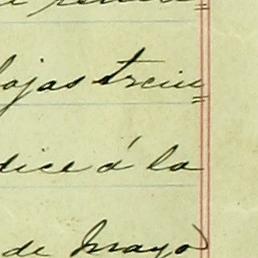 ojas trein=
dice á la
de Mayo